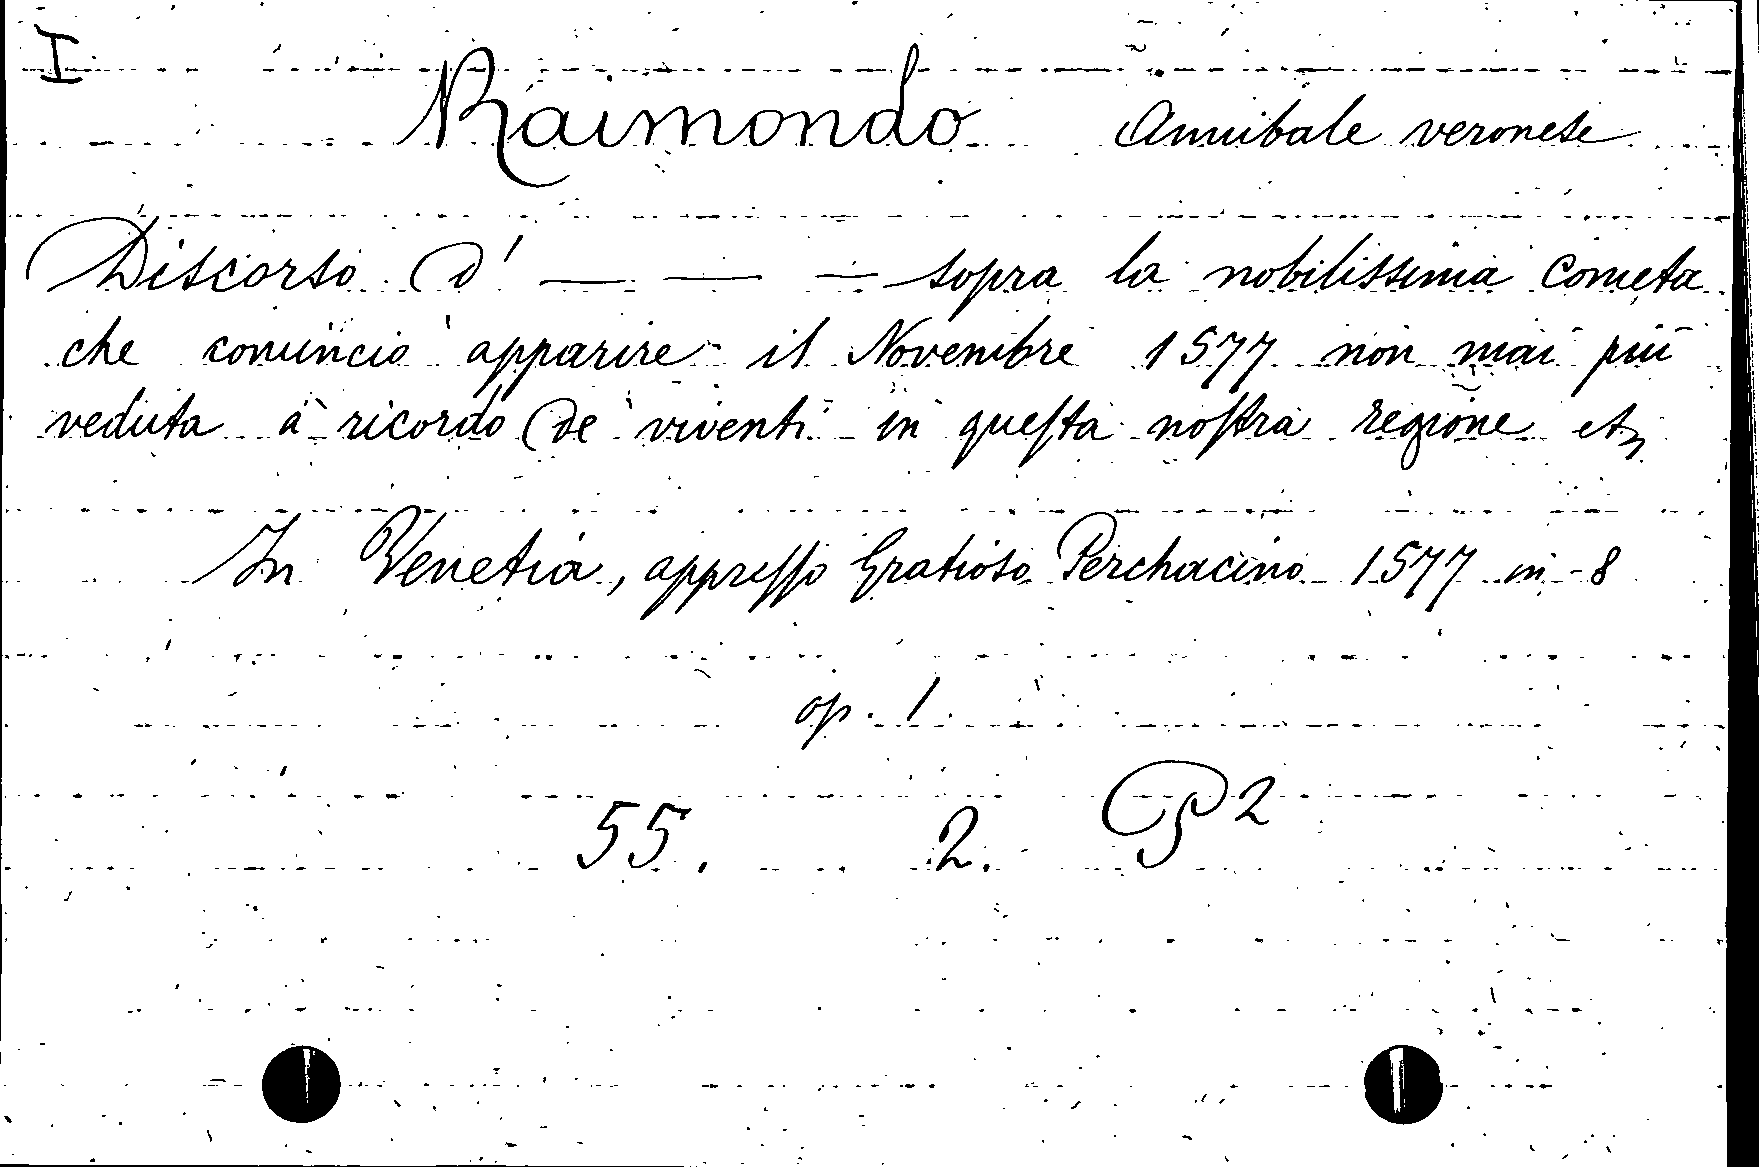 I
Raimondo Annibale veronese
Discorso d' — — — sopra la nobilissima cometa
che comincio apparire il Novembre 1577 non mai più
veduta à ricordo de viventi in questa nostra regione etc
In Venetia, appresso Gratioso Perchacino 1577 in-8
op. 1
55. 2. P 2